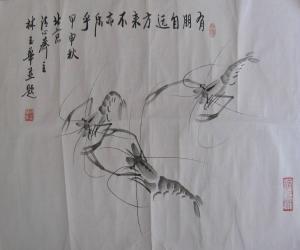 有朋自远方来不亦乐乎
甲申秋
北京
林玉华并题